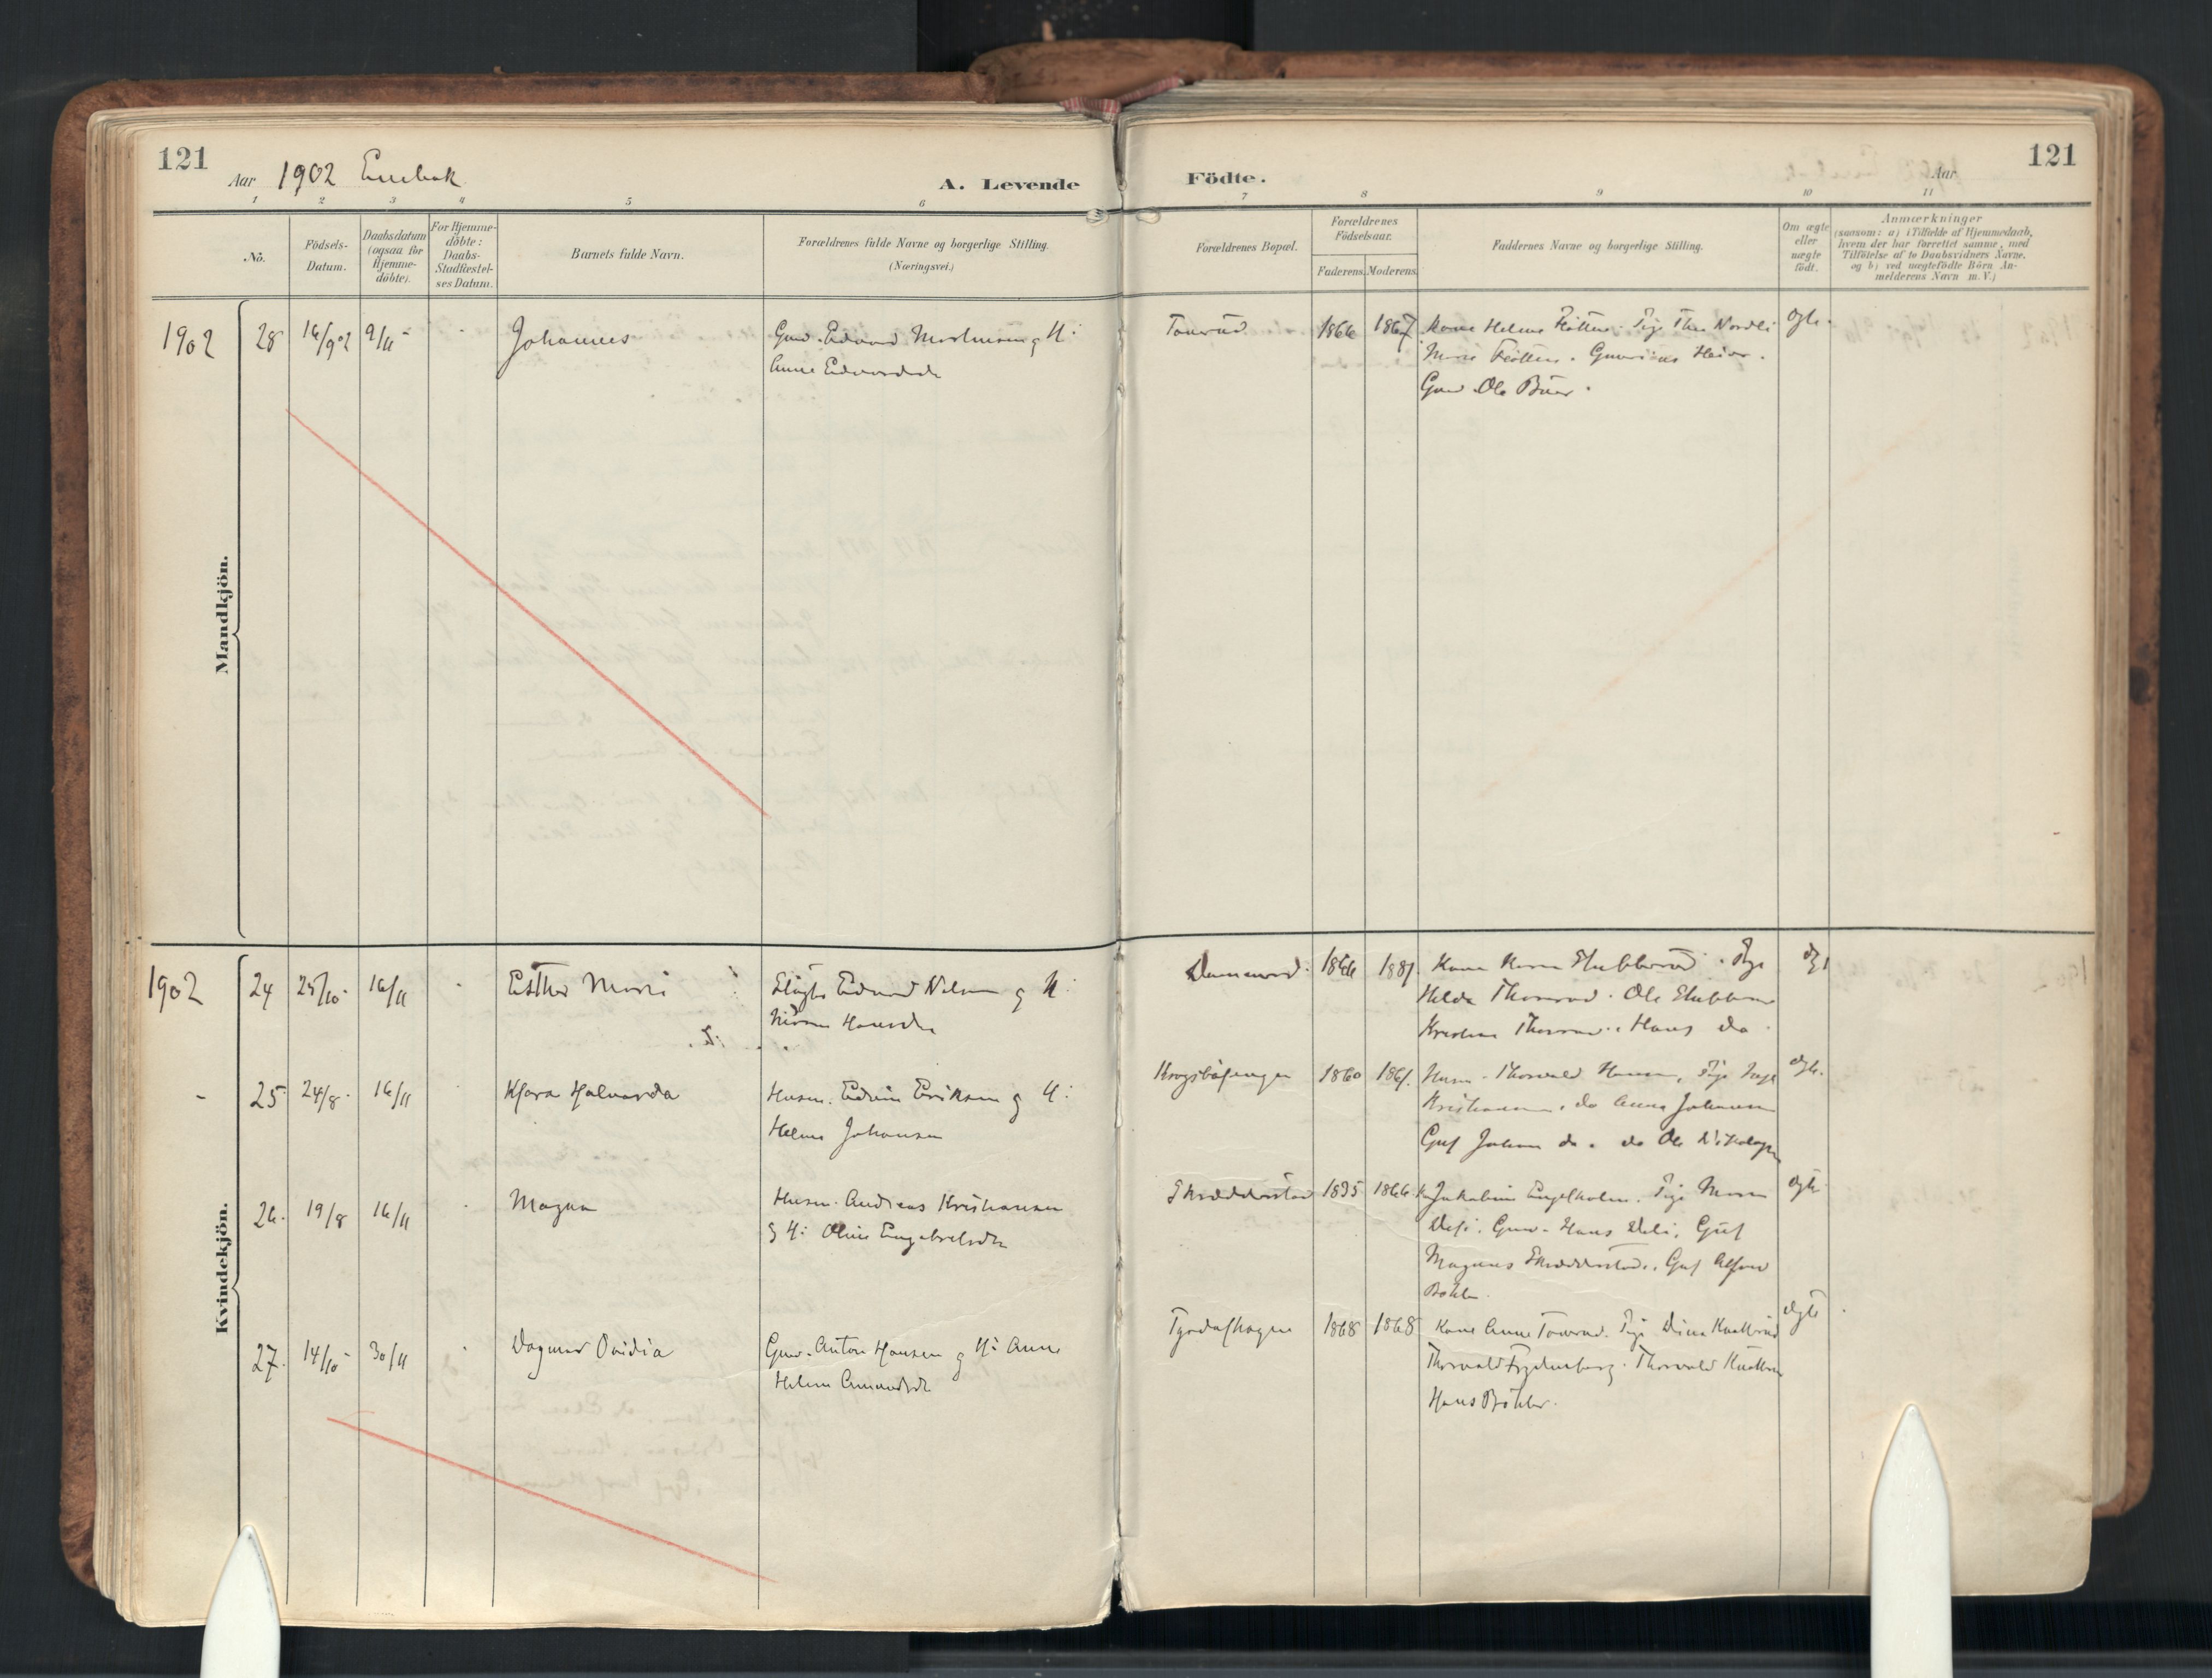 121
Aar 1902 Enebak
A. Levende
Födte.
Aar
121
1 2 3 4 5 6 7 8 9 10 11
Nö.
Födsels-
Datum.
Daabsdatum
(ogsaa för
Hjemme-
döbte).
For Hjemme-
döbte:
Daabs-
Stadfæstel-
ses Datum.
Barnets fulde Navn.
Forældrenes fulde Navne og borgerlige Stilling.
(Næringsvei.)
Forældrenes Bopæl.
Forældrenes
Födselsaar.
Faderens. Moderens.
Faddernes Navne og borgerlige Stilling.
Om ægte
eller
uægte
födt.
Anmærkninger
(saasom: a) i Tilfælde af Hjemmedaab,
hvem der har forrettet samme, med
Tilföielse af to Daabsvidners Navne.
og b) ved uægtefödte Börn An-
melderens Navn m. V.)
Mandkjön.
1902 28 16/9 02 9/11 - Johannes Gmd. Edvard Martinsen og H: Tomrud 1866 1867 Kone Helene Fløtten. Pige Thea Nordli ægte.
Anne Edvardsdr Marie Fløtten.
Gmd Ole Buer.
Kvindekjön.
1902 24 25/10 16/11 - Esther Marie Edvard Nilsen og H: 1866 1881 Kone Stubberud. Pige ægt
Hansdr Hilda Thomrud. Ole Stubberud
Kristian Thomrud. Hans do.
- 25 24/8 16/11 Klara Halvarda Husm. Edvin Eriksen og H: Krogsbølengen 1860 1861. Husm. Thorvald Hansen, Pige ægte.
Helene Johansen Kristiansen, do Anna Johansen
Gut Johan do. do Ole Nikolaysen
26. 19/8 16/11 - Magna Husm. Andreas Kristiansen Skrædderstad 1835 1866. Jakobine Engelholm. Pige Maren ægte
og H: Oline Engebretsdr Gmd. Hans Gut
Magnus Skrædderstad. Gut Alfred
Böhler
27. 14/10 30/11 - Dagmar Ovidia Gmd. Anton Hansen og H: Anne 1868 1868 Kone Anne Tomrud. Pige Dina Knatterud ægte
Helene Amundsdr Thorvald Frydenberg. Thorvald Knatterud
Hans Böhler.